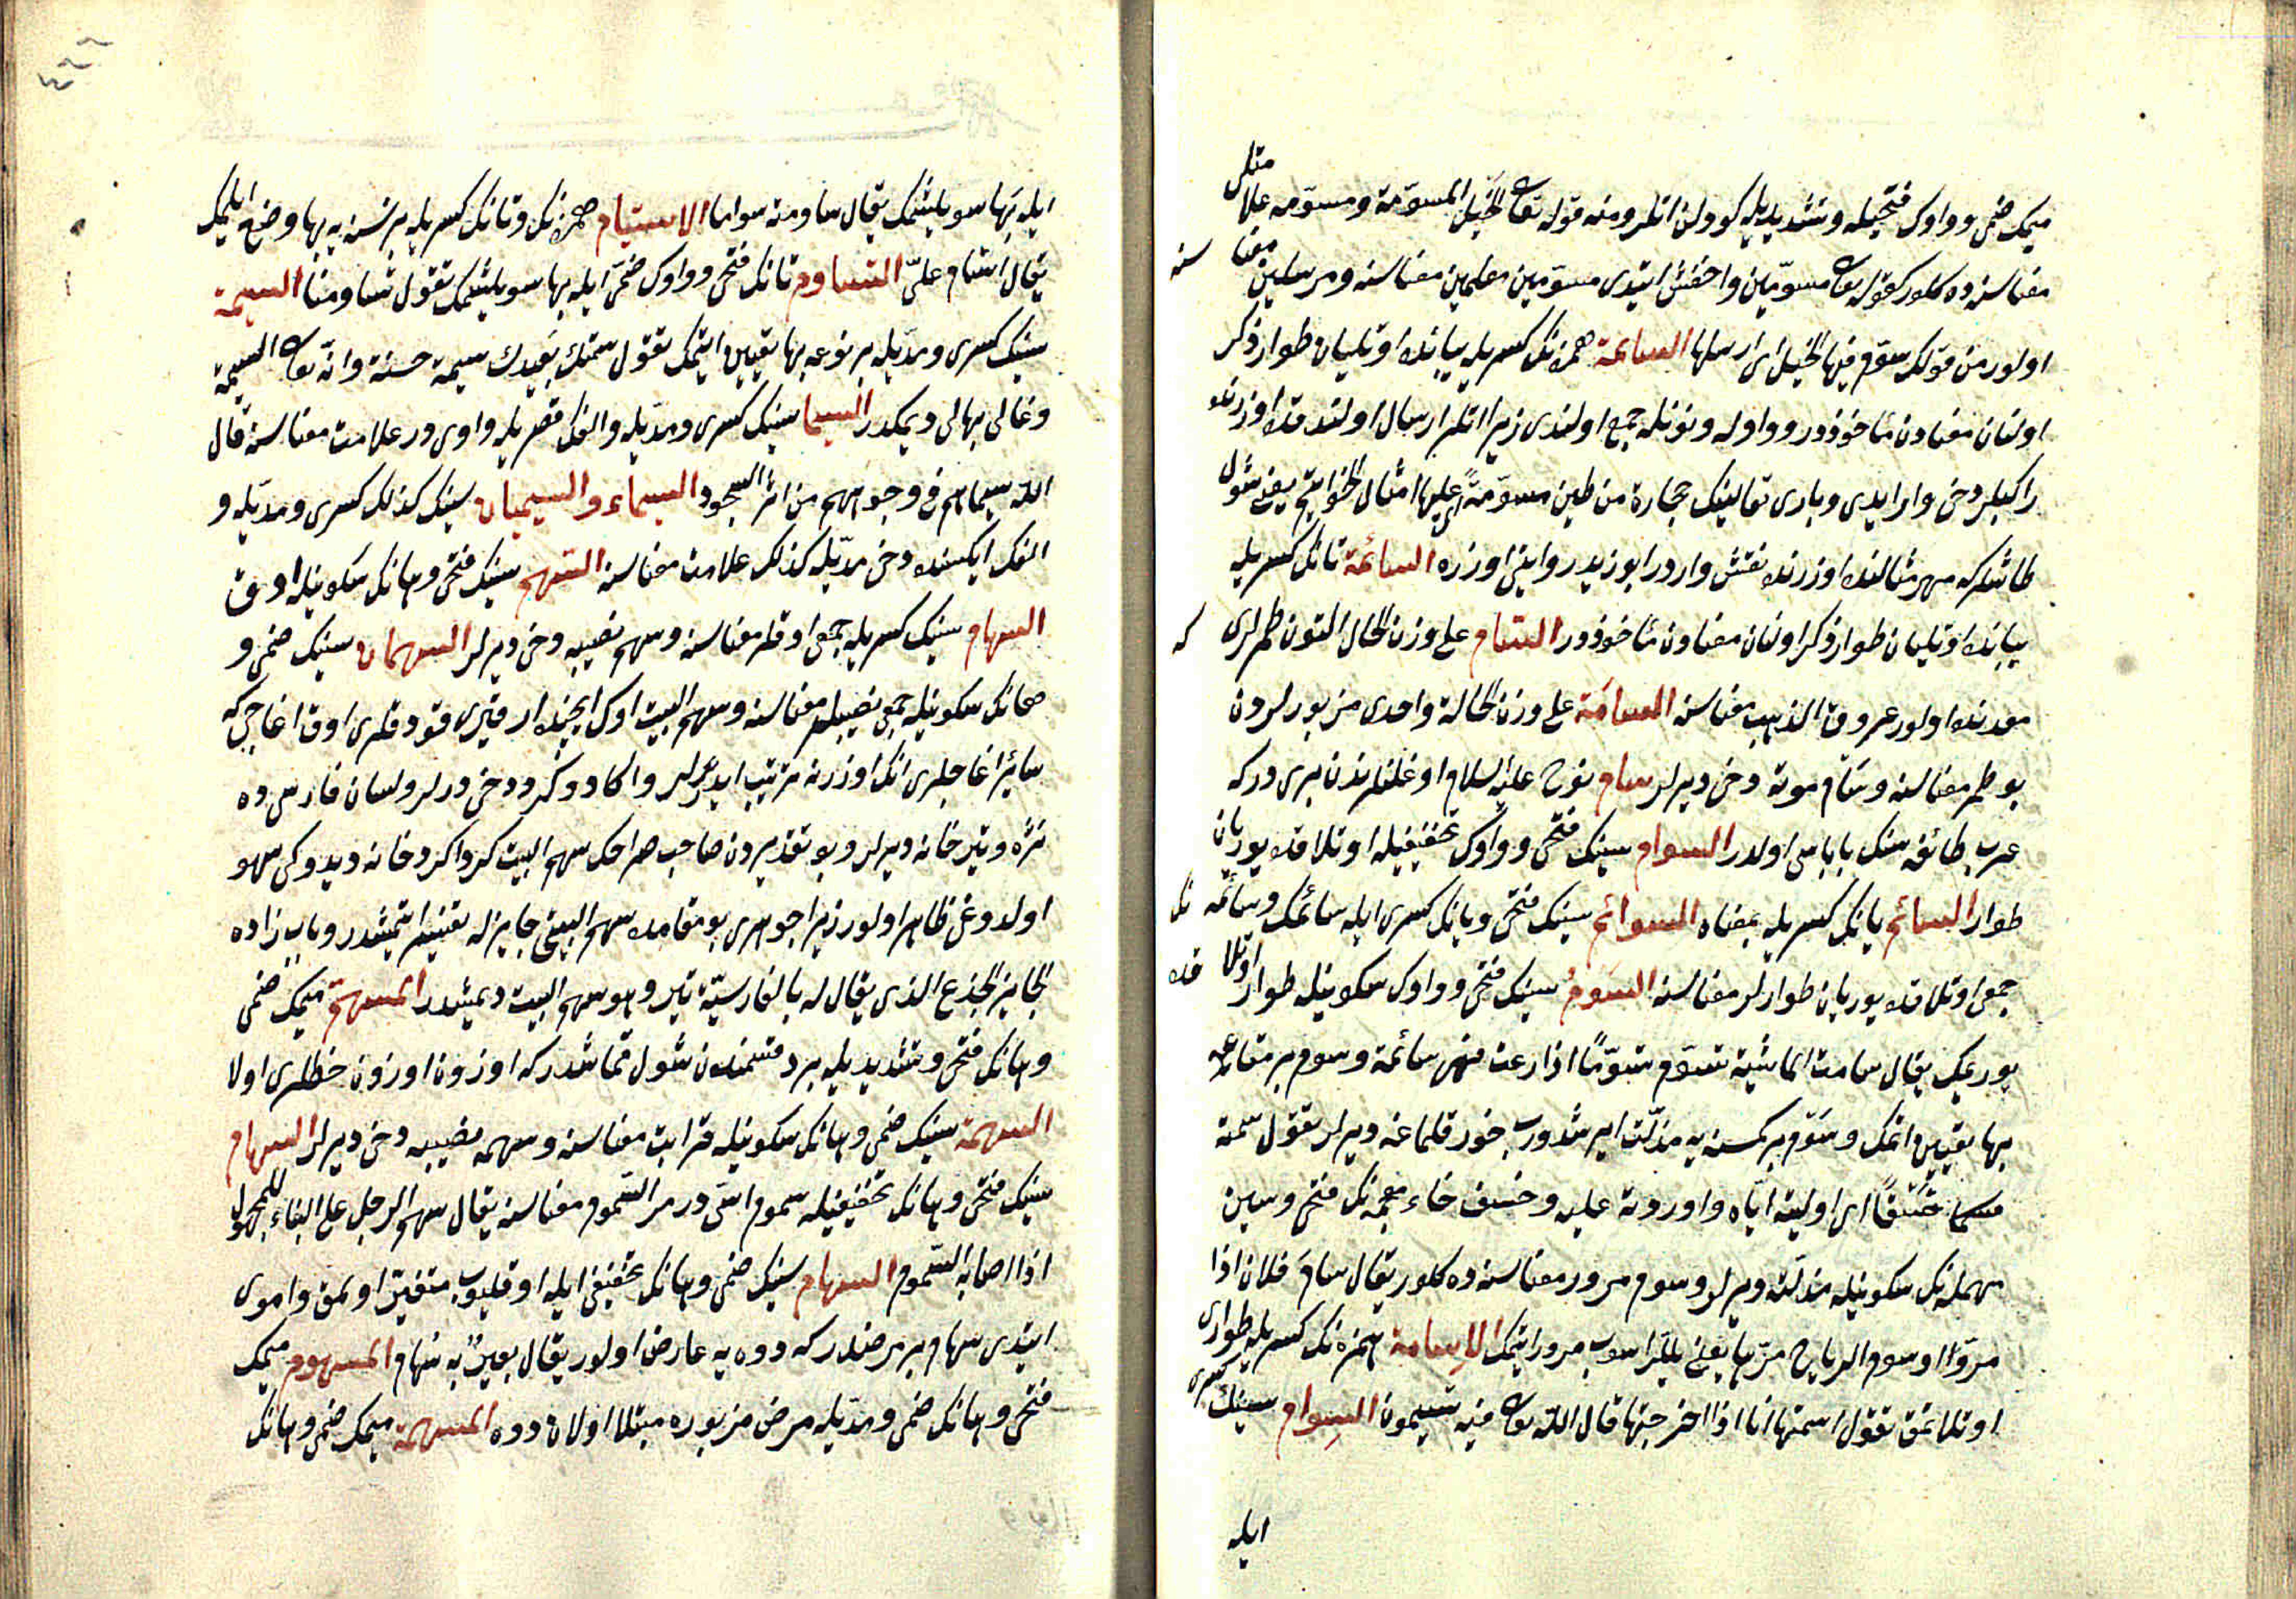 میمك ضمی وواوك فتحیله وتشدیدیله كوولن اتلر ومنه قوله تعا الخیل المسوّمة ومسوّمه علا متلى
معناسنه ده كلور كقوله تعا مسوّمین واخفش ایتدی مسوّمین معلمین معناسنه ومرسلین معنا سنه
اولور من قولك سوّم فیها الخیل ای ارسلها السایمة همزه نك كسریله یبانده اوتلیان طوار ذكر
اولنان معنادن مأخوذدر وواوله ونونله جمع اولندی زیرا اتلر ارسال اولندقده اوزرنده
راكبلر دخی وار ایدی وباری تعالینك حجارة من طین مسوّمةً ای علیها امثال الخواتیم یعنی شول
طاشلركه مهر مثالنده اوزرنده نقش واردر ابو زید روایتی اوزره السائمة تانك كسریله
یبانده اوتلیان طوار ذكر اولنان معنادن مأخوذدر السام علی وزن الحال التون طمرلری كه
معدنده اولور عروق الذهب معناسنه السامة علی وزن الحالة واحدی مزبورلردن
بو طمر معناسنه وسام موته دخی دیرلر سام نوح علیه السلام اوغلنلرندن بری در كه
عرب طائفه سنك باباسی اولدر السوام سینك فتحی وواوك تخفیفیله اوتلاقده یوریان
طوار السائم یانك كسریله بمعناه السوائم سینك فتحی ویانك كسری ایله سائمك وسائمه نك
جمعی اوتلاقده یوریان طوارلر معناسنه السوم سینك فتحی وواوك سكونیله طوار اوتلا قده
یوریمك یقال سامت الماشیة تسوم سومًا اذا رعت فهی سائمة وسوم بر متاعه
بها تعیین اتمك وسوم بر كمسنه یه مذلّت ایرشدورب خورقلمغه دیرلر تقول سمته
خسفًا ای اولیته ایّاه واوردته علیه وخسف خاء معجمه نك فتحی وسین
مهمله نك سكونیله مذلّته دیرلر وسوم مرور معناسنه ده كلور یقال سام فلان اذا
مرّ وسوم الریاح مرّها یعنی یللر اسوب مرور ایتمك الاسامة همزه نك كسریله طواری
اوتلاتمق تقول اسمتها انا اذا اخرجتها قال الله تعا فیه تسیمون السوام سینك كسری
ایله
٤٦٦
ایله بها سویلشمك یقال ساومته سواما الاستیام همزه نك وتانك كسریله بر نسنه یه بها وضع ایلمك
یقال استام علیّ التساوم تانك فتحی وواوك ضمی ایله بها سویلشمك تقول تساومنا السیمة
سینك كسری ومدّیله بر نوعه بها تعیین ایتمك تقول سمتك بعیرك سیمة حسنة وانّه لغالی السیمة
وغالی بهالی دیمكدر السیما سینك كسری ومدّیله والفك قصریله واوی در علامت معناسنه قال
الله سیماهم فی وجوههم من اثر السجود السیماء والسیمیاء سینك كذلك كسری ومدّیله و
الفك ایكسنده دخی مدّیله كذلك علامت معناسنه السهم سینك فتحی وهانك سكونیله اوق
السهام سینك كسریله جمعی اوقلر معناسنه وسهم نصیبه دخی دیرلر السهمان سینك ضمی و
هانك سكونیله جمعی نصیبلر معناسنه وسهم البیت اوك ایچنده ارقیری قودقلری اوق اغاجی كه
سائر اغاجلری انك اوزرنه ترتیب ایدرلر واكا دوكرو دخی درلر ولسان فارسی ده
نژه وتیر خانه دیرلر وبو تقدیردن صاحب صراحك سهم البیت كرداكرد خانه دیدوكی سهو
اولدوغی ظاهر اولور زیرا جوهری بو مقامده سهم البیتی جایزله تفسیر ایتمشدر وباب زاده
الجایز الجذع الذی یقال له بالفارسیّة تیر وهو سهم البیت دیمشدر المسهّم میمك ضمی
وهانك فتحی وتشدیدیله بر قسمندن شول قماشدركه اوزون اوزون خطلری اولا
السهمة سینك ضمی وهانك سكونیله قرابت معناسنه وسهمه نصیبه دخی دیرلر السهام
سینك فتحی وهانك تخفیفیله سموم اسی در حر السموم معناسنه یقال سهم الرجل علی البناء للمجهول
اذا اصابه السموم السهام سینك ضمی وهانك تخفیفی ایله اوقلیوب متغیر اولمق واموی
ایتدی سهام بر مرضدركه دوه یه عارض اولور یقال بعیرٌ به سهام المسهوم میمك
فتحی وهانك ضمی ومدّیله مرض مزبوره مبتلا اولان دوه المسهمة میمك ضمی وهانك